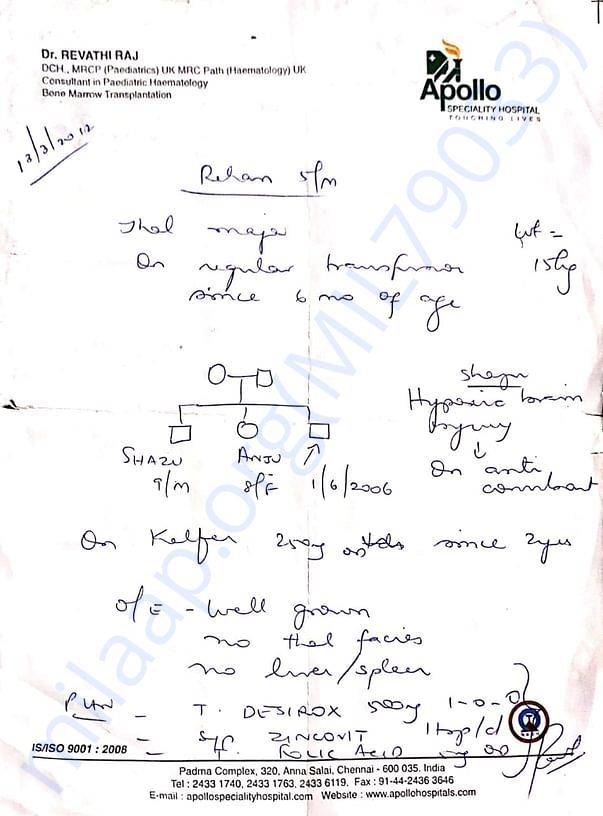 Dr. REVATHI RAJ
DCH., MRCP (Paediatrics) UK MRC Path (Haematology) UK
Consultant in Paediatric Haematology
Bone Marrow Transplantation
Apollo
SPECIALITY HOSPITAL
TOUCHING LIVES
13/3/2012
Rehan 5/M
Thal major
On regular transfusion
since 6 mo of age
wt =
15kg
SHAZU
9/M
ANJU
8/F
1/6/2006
Hypoxic brain
injury
On anti
On Kelfer 250mg since 2yrs
O/E - Well grown
no thal facies
no liver/spleen
PLAN
- T. DESIROX 500mg 1-0-0
- Syp. ZINCOVIT 1tsp/d
- T. FOLIC ACID OD
IS/ISO 9001 : 2008
Padma Complex, 320, Anna Salai, Chennai - 600 035. India
Tel : 2433 1740, 2433 1763, 2433 6119. Fax : 91-44-2436 3646
E-mail : apollospecialityhospital.com Website : www.apollohospitals.com
milaap.org(MIL79033)